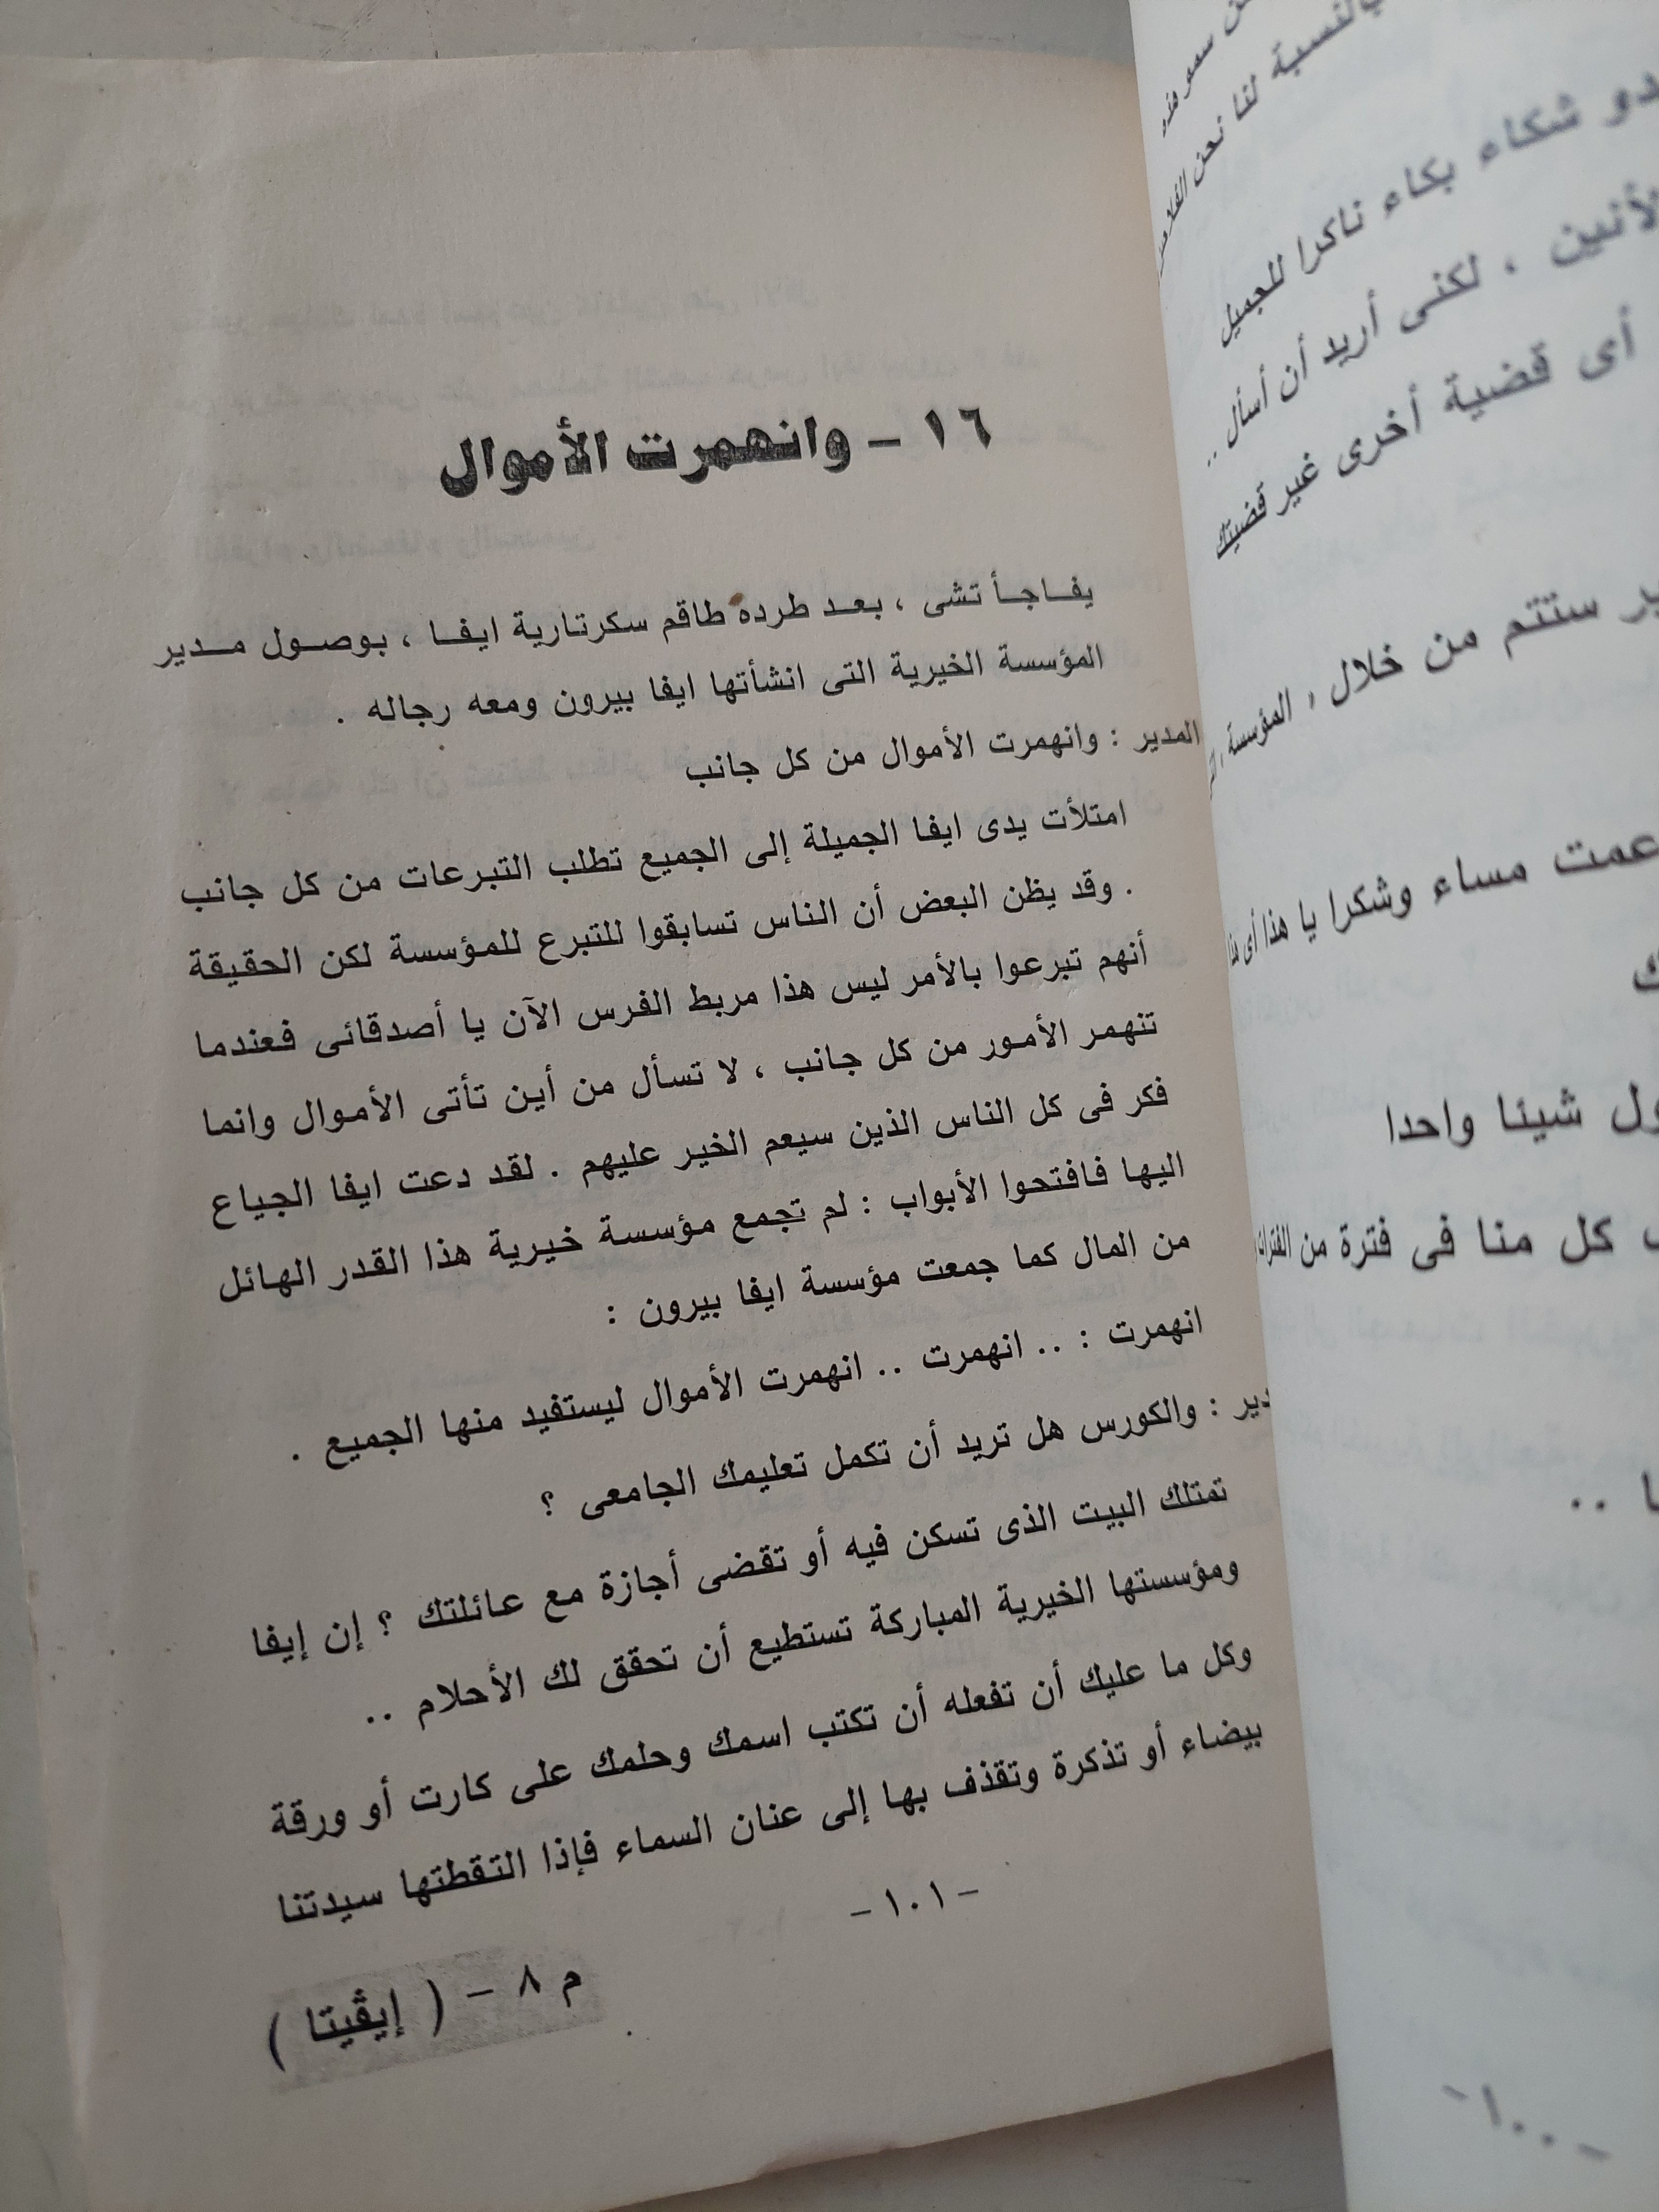 ـن سمو هذه
بالنسبة لنا نحن الفلا
دو شكاء بكاء ناكرا للجميل
لأنين ، لكنى أريد أن أسأل ..
أى قضية أخرى غير قضيتك
ـر ستتم من خلال , المؤسسة ,
عمت مساء وشكرا يا هذا أى
ك
ول شيئا واحدا
كل منا فى فترة من الفترات
ـا ..
- ١٠٠ -
١٦ - وانهمرت الأموال
يفـاجـأ تشى ، بعـد طرده طاقم سكرتارية ايفـا ، بـوصـول مـدير
المؤسسة الخيرية التى انشأتها ايفا بيرون ومعه رجاله .
المدير : وانهمرت الأموال من كل جانب
امتلأت يدى ايفا الجميلة إلى الجميع تطلب التبرعات من كل جانب
. وقد يظن البعض أن الناس تسابقوا للتبرع للمؤسسة لكن الحقيقة
أنهم تبرعوا بالأمر ليس هذا مربط الفرس الآن يا أصدقائى فعندما
تنهمر الأمور من كل جانب ، لا تسأل من أين تأتى الأموال وانما
فكر فى كل الناس الذين سيعم الخير عليهم . لقد دعت ايفا الجياع
اليها فافتحوا الأبواب : لم تجمع مؤسسة خيرية هذا القدر الهائل
من المال كما جمعت مؤسسة ايفا بيرون :
انهمرت : .. انهمرت .. انهمرت الأموال ليستفيد منها الجميع .
ـدير : والكورس هل تريد أن تكمل تعليمك الجامعى ؟
تمتلك البيت الذى تسكن فيه أو تقضى أجازة مع عائلتك ؟ إن إيفا
ومؤسستها الخيرية المباركة تستطيع أن تحقق لك الأحلام ..
وكل ما عليك أن تفعله أن تكتب اسمك وحلمك على كارت أو ورقة
بيضاء أو تذكرة وتقذف بها إلى عنان السماء فإذا التقطتها سيدتنا
- ١٠١ -
م ٨ - ( إيڤيتا )